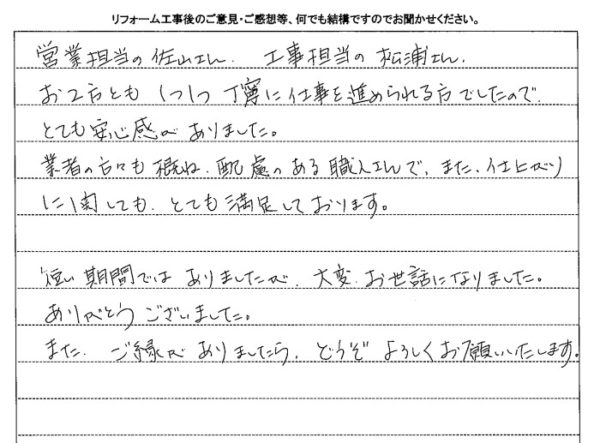 リフォーム工事後のご意見・ご感想等、何でも結構ですのでお聞かせください。
営業担当の佐山さん、工事担当の松浦さん、
お2方とも1つ1つ丁寧に仕事を進められる方でしたので、
とても安心感がありました。
業者の方々も概ね、配慮のある職人さんで、また、仕上がり
に関しても、とても満足しております。
短い期間ではありましたが、大変、お世話になりました。
ありがとうございました。
また、ご縁がありましたら、どうぞよろしくお願いいたします。